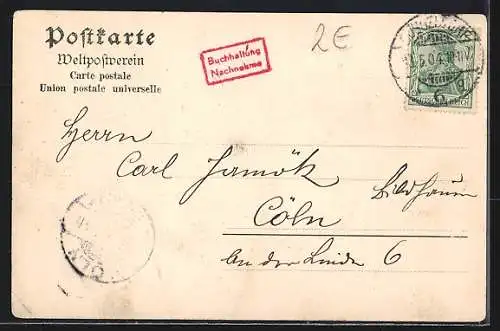 Postkarte
Weltpostverein
Carte postale
Union postale universelle
Buchhaltung
Nachnahme
2€
Herrn
Carl Jamök
Bildhauer
Cöln
An der Linde 6